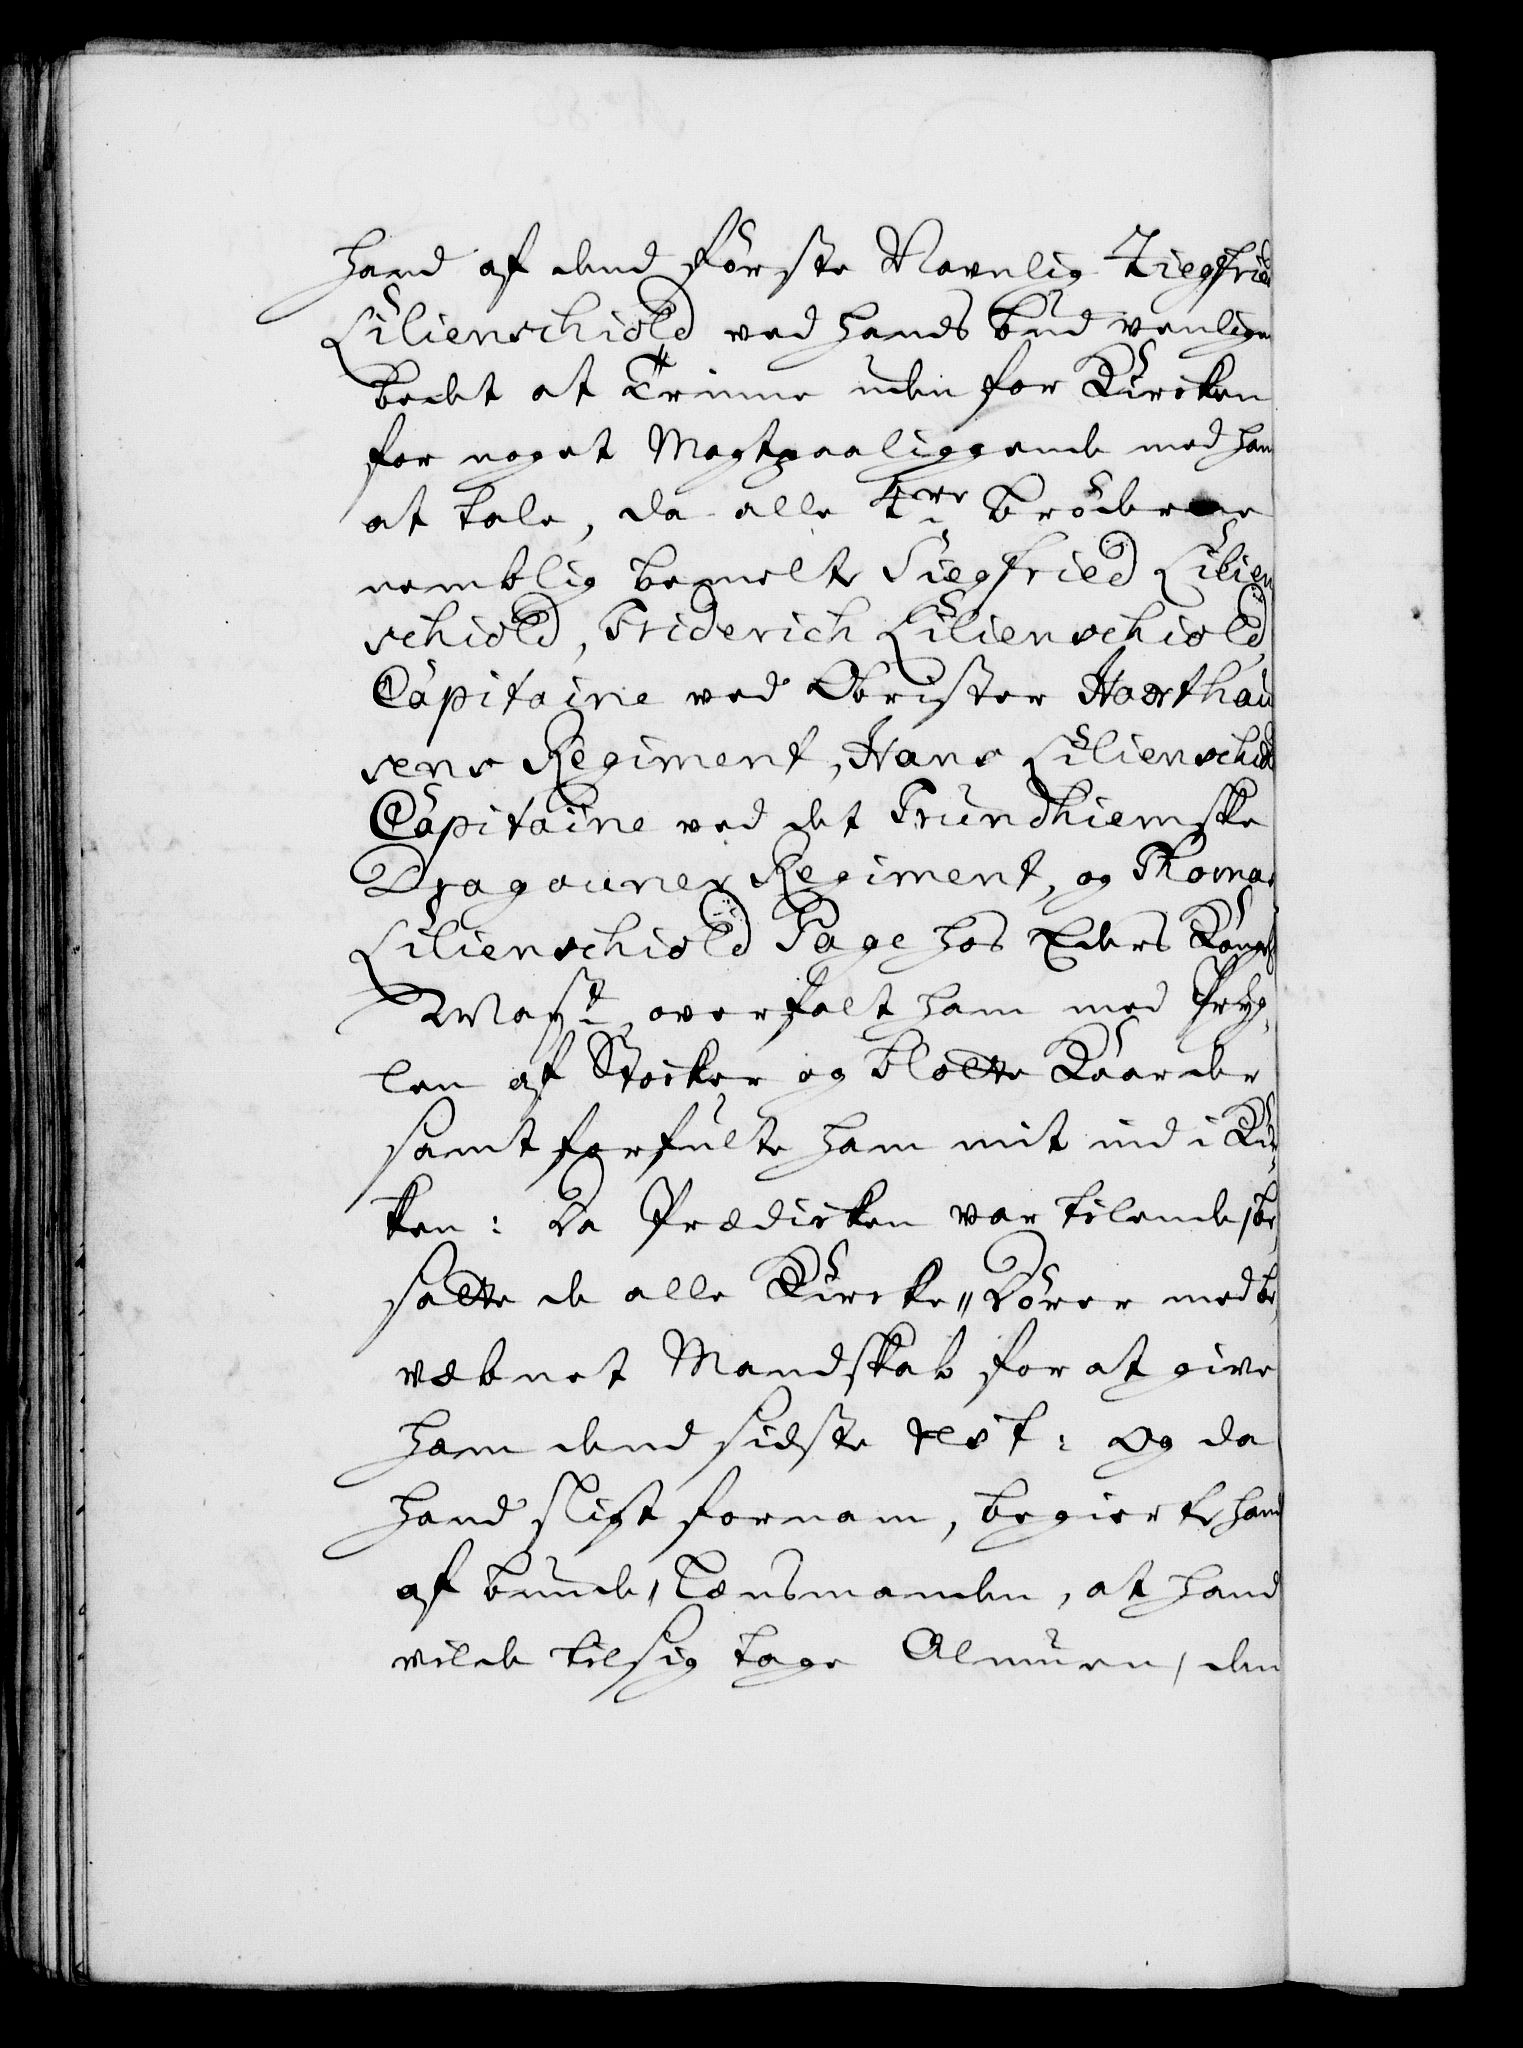 hand af dend förste Navnlig Ziegfried
Lilienschiold ved hands bud venligen
bedet at Trinne uden for Kircken
for noget Magtpaaliggende med ham
at tale, da alle 4re Bröderne
nemblig bemelte Siegfried Lilien
schiold, Friderich Lilienschiold,
Capitaine ved Obrister Haxthau
sens Regiment, Hans Lilienschiold
Capitaine ved det Trundhiemske
Dragouner Regiment, og Thomas
Lilienschiold Page hos Eders Kongl
Mayst, overfalt ham med Pryg,
len af Stocker og blotte Kaarder
samt forfulte ham mit ind i Kir-
ken: Da Prædicken var tilende, be,
satte de alle Kircke„ Dörer med be,
væbnet Mandskab for at give
ham dend sidste rest: og da
hand sligt fornam, begierte hand
af bunde„ Lensmanden, at hand
vilde til sig tage Almuen, den